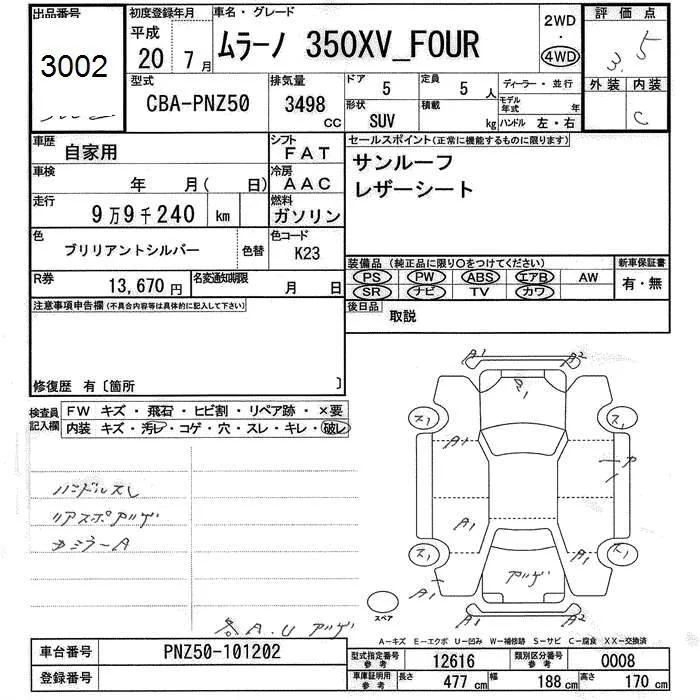 出品番号 初度登録年月 車名・グレード 2WD 評価点
3002 平成 20 年 7 月 ムラーノ 350XV_FOUR ・ 4WD 3.5
型式 排気量 ドア 定員 ディーラー・並行 外装 内装
CBA-PNZ50 3498 cc 5 5 人 モデル年式 年 C
形状 積載 ハンドル 左・右
SUV kg
車歴 自家用 シフト FAT セールスポイント(正常に機能するものに限ります)
車検 年 月( 日) 冷房 AAC サンルーフ
走行 9万9千240 km 燃料 ガソリン レザーシート
色 ブリリアントシルバー 色替 色コード K23
装備品 (純正品に限り○をつけてください) 新車保証書
R券 13,670 円 名変通知期限 月 日 PS PW ABS エアB AW 有・無
SR ナビ TV カワ
注意事項申告欄(不具合内容等は具体的に記入して下さい) 後日品 取説
修復歴 有〔箇所 〕
検査員記入欄 FW キズ・飛石・ヒビ割・リペア跡・×要
内装 キズ・汚レ・コゲ・穴・スレ・キレ・破レ
A1 A2
A1
ス1 ス1
A1
ハンドルスレ
リアスポアゲ
ス1 A1 A1 ス1
A1 アゲ A1
スペア
A1 A2
A.U アゲ
A-キズ E-エクボ U-凹み W-補修跡 S-サビ C-腐食 XX-交換済
車台番号 PNZ50-101202 型式指定番号 参考 12616 類別区分番号 参考 0008
登録番号 車庫証明用 参考 長さ 477 cm 幅 188 cm 高さ 170 cm